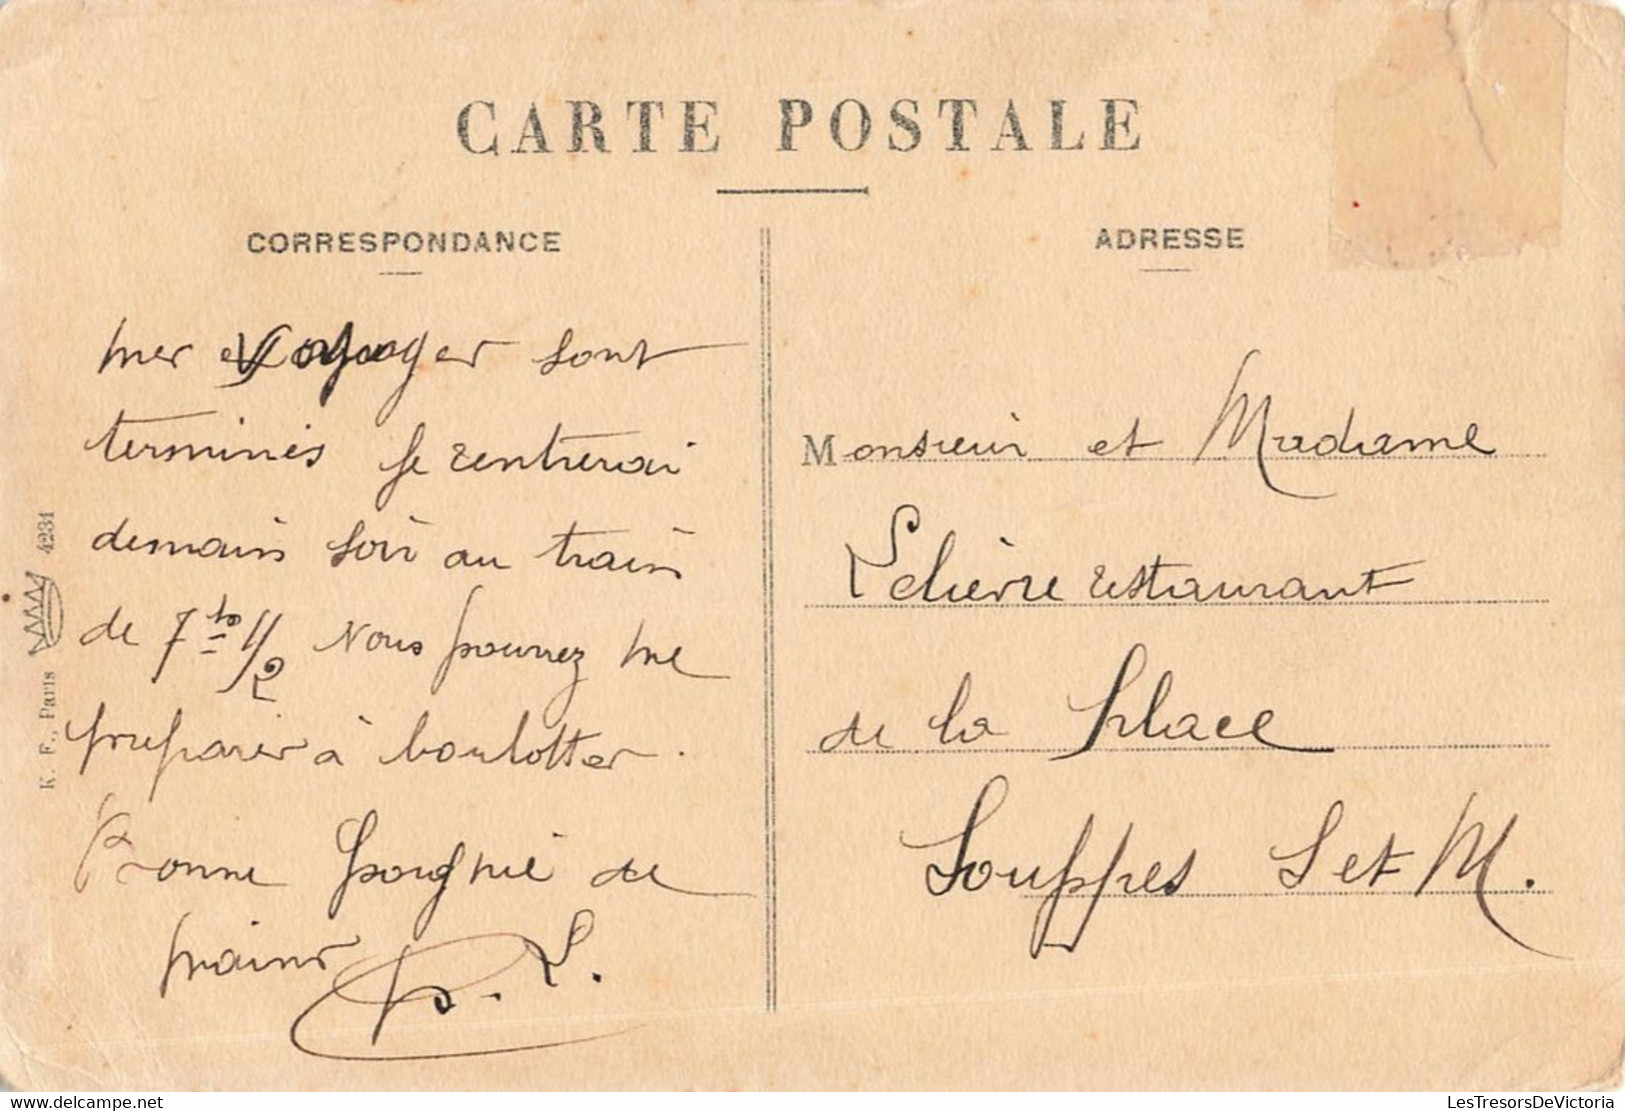 CARTE POSTALE
CORRESPONDANCE
mes voyages sont
terminés je rentrerai
demain soir au train
de 7 1/2 Vous pourrez me
preparer à boulotter.
Bonne poignée de
mains
L.
ADRESSE
Monsieur et Madame
Lelièvre restaurant
de la Place
Souppes S et M.
K. F., Paris 4231
delcampe.net
LesTresorsDeVictoria